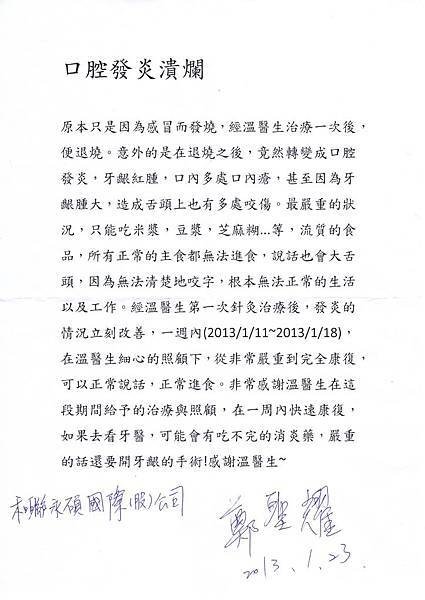 口腔發炎潰爛
原本只是因為感冒而發燒，經溫醫生治療一次後，
便退燒。意外的是在退燒之後，竟然轉變成口腔
發炎，牙齦紅腫，口內多處口內瘡，甚至因為牙
齦腫大，造成舌頭上也有多處咬傷。最嚴重的狀
況，只能吃米漿，豆漿，芝麻糊...等，流質的食
品，所有正常的主食都無法進食，說話也會大舌
頭，因為無法清楚地咬字，根本無法正常的生活
以及工作。經溫醫生第一次針灸治療後，發炎的
情況立刻改善，一週內(2013/1/11~2013/1/18)，
在溫醫生細心的照顧下，從非常嚴重到完全康復，
可以正常說話，正常進食。非常感謝溫醫生在這
段期間給予的治療與照顧，在一周內快速康復，
如果去看牙醫，可能會有吃不完的消炎藥，嚴重
的話還要開牙齦的手術!感謝溫醫生~
聯永碩國際(股)公司
鄭聖耀
2013.1.23